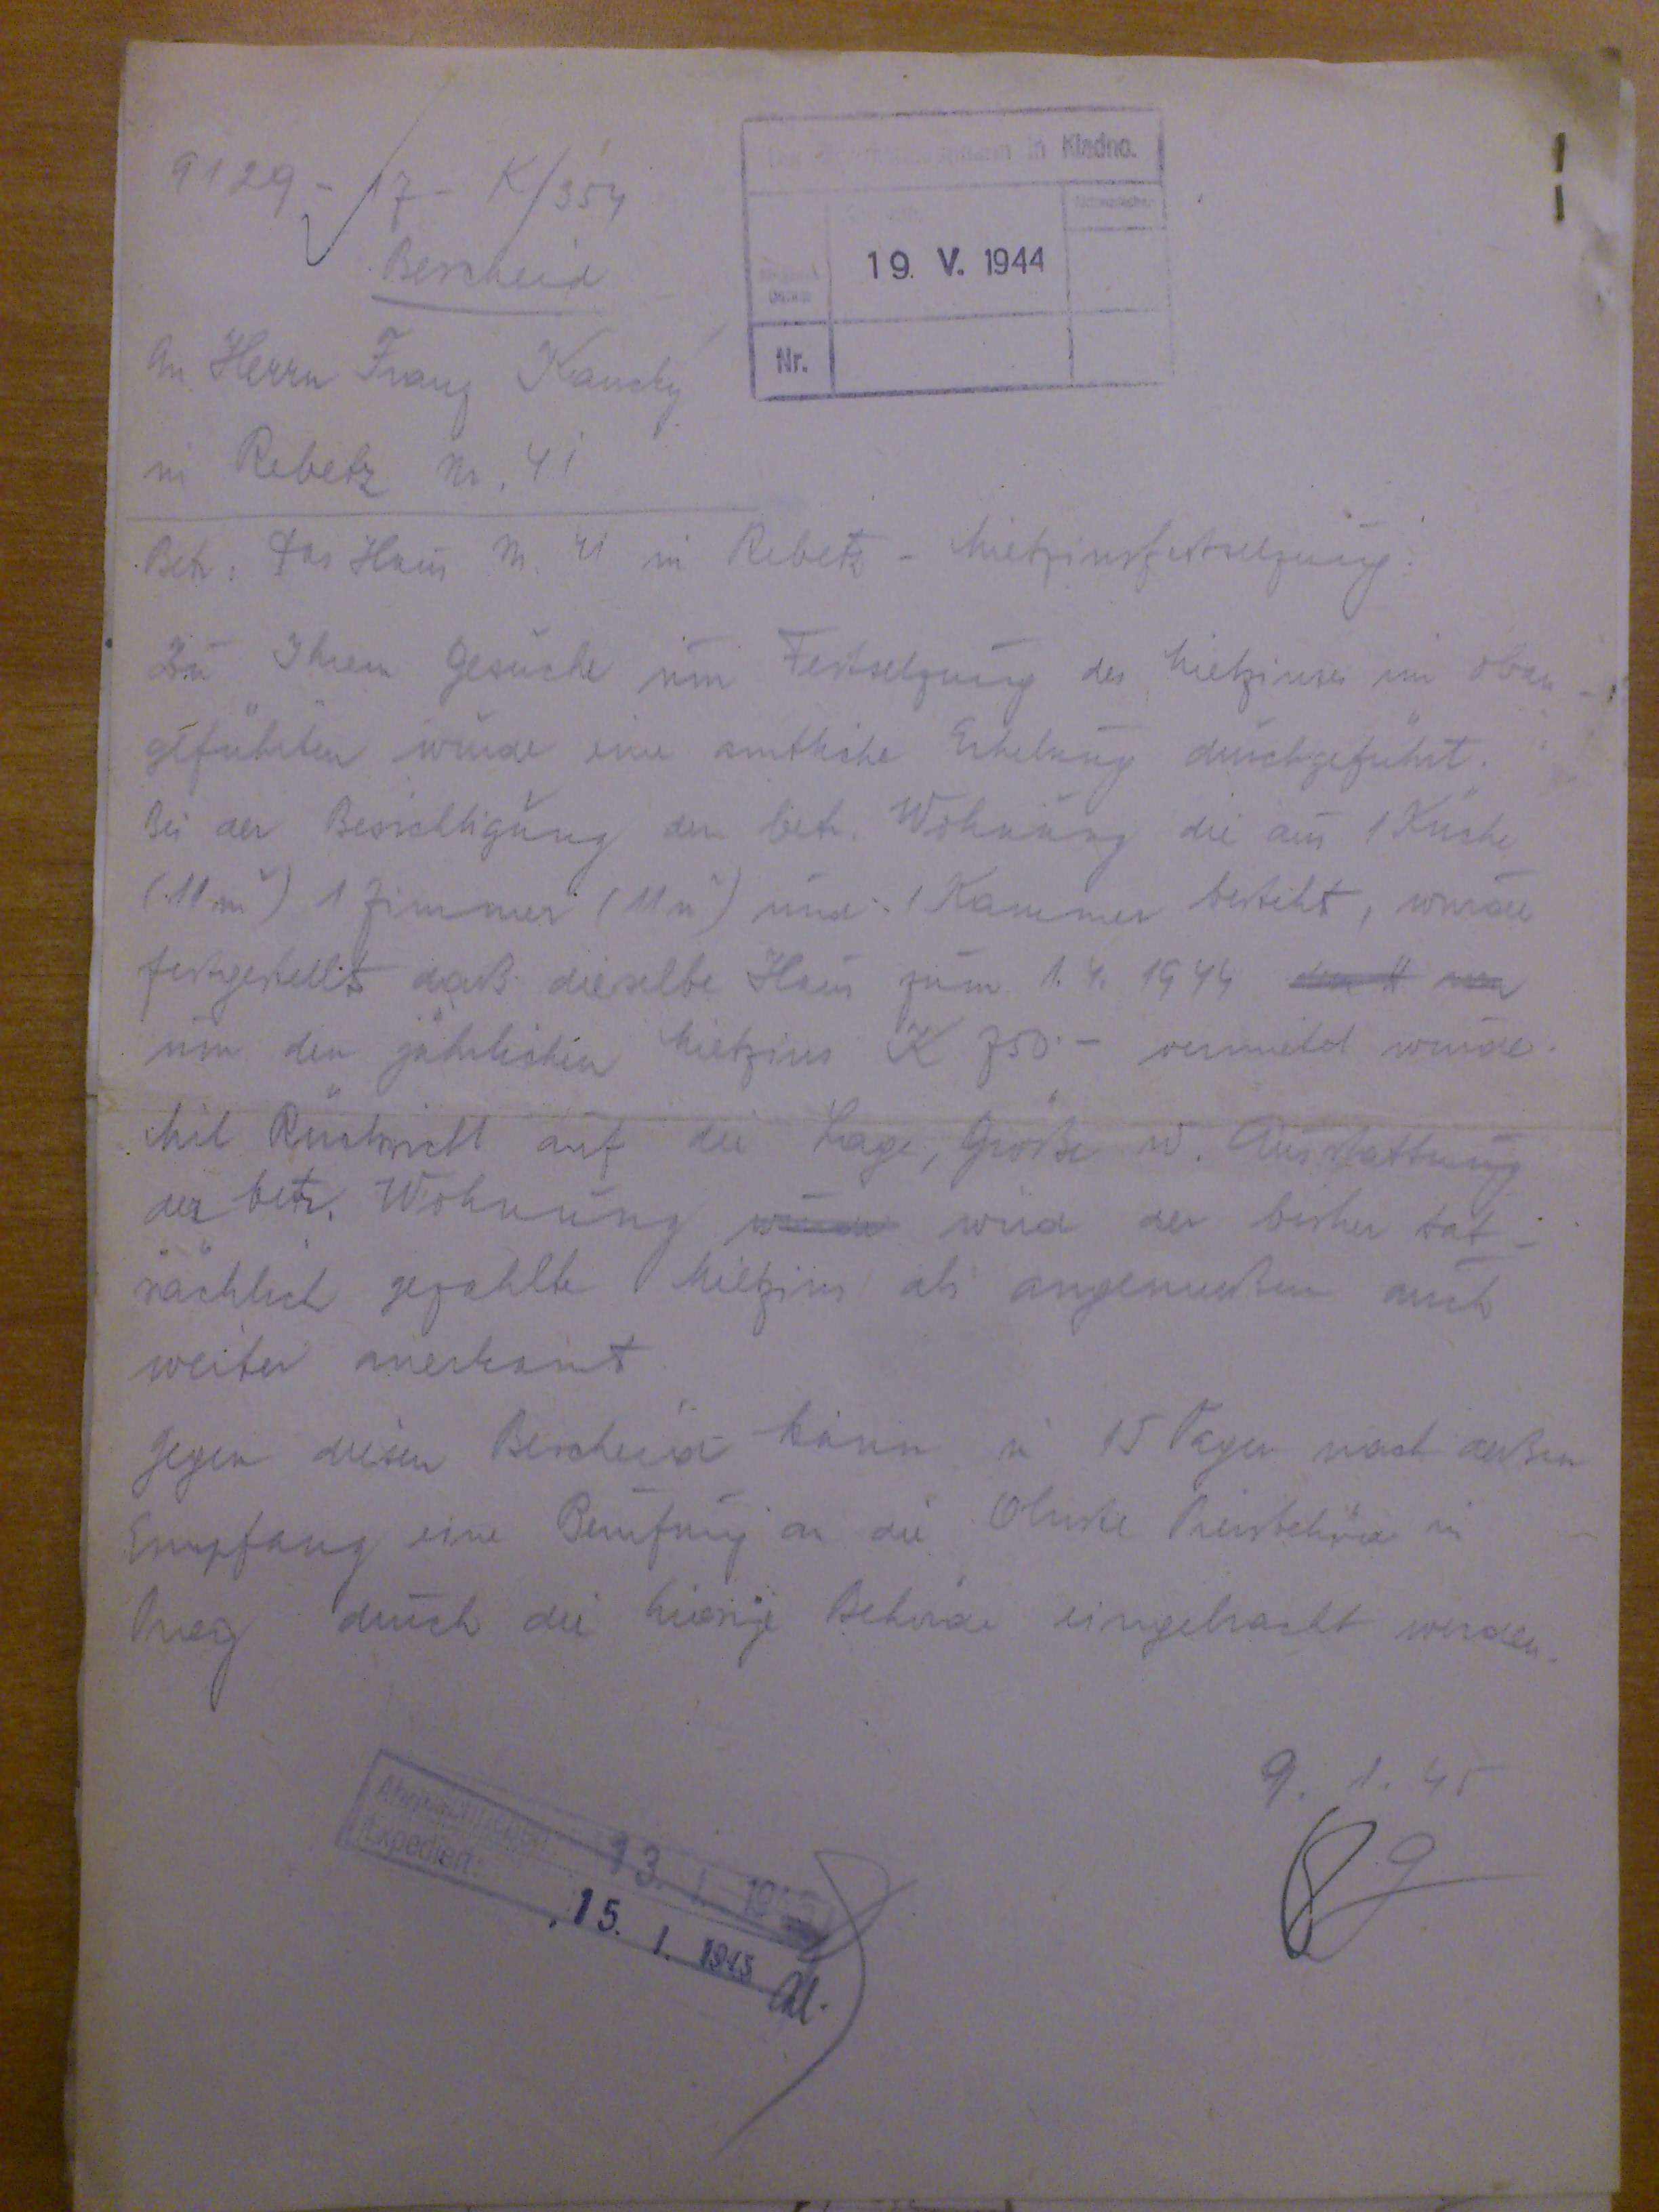 9129-17-K/354
in Kladno.
19. V. 1944
Nr.
Bescheid
An Herrn Franz Kaucky
in Rebetz Nr. 41
Betr. Das Haus Nr. 41 in Rebetz - Mietzinsfestsetzung.
Zu Ihrem Gesuche um Festsetzung des Mietzinses im oban-
geführten wurde eine amtliche Erhebung durchgeführt.
Bei der Besichtigung der betr. Wohnung die aus 1 Küche
(11 m²) 1 Zimmer (11 m²) und 1 Kammer besteht, wurde
festgestellt daß dieselbe Haus zum 1. 4. 1944
um den jährlichen Mietzins K 750.- vermietet wurde.
Mit Rücksicht auf die Lage, Größe u. Ausstattung
der betr. Wohnung wurde wird der bisher tat-
sächlich gezahlte Mietzins als angemessen auch
weiter anerkannt
Gegen diesen Bescheid kann in 15 Tagen nach dessen
Empfang eine Berufung an die Oberste Preisbehörde in
Prag durch die hiesige Behörde eingebracht werden.
9. 1. 45
Abgeschrieben: 13. I. 1945
Expediert: 15. I. 1945